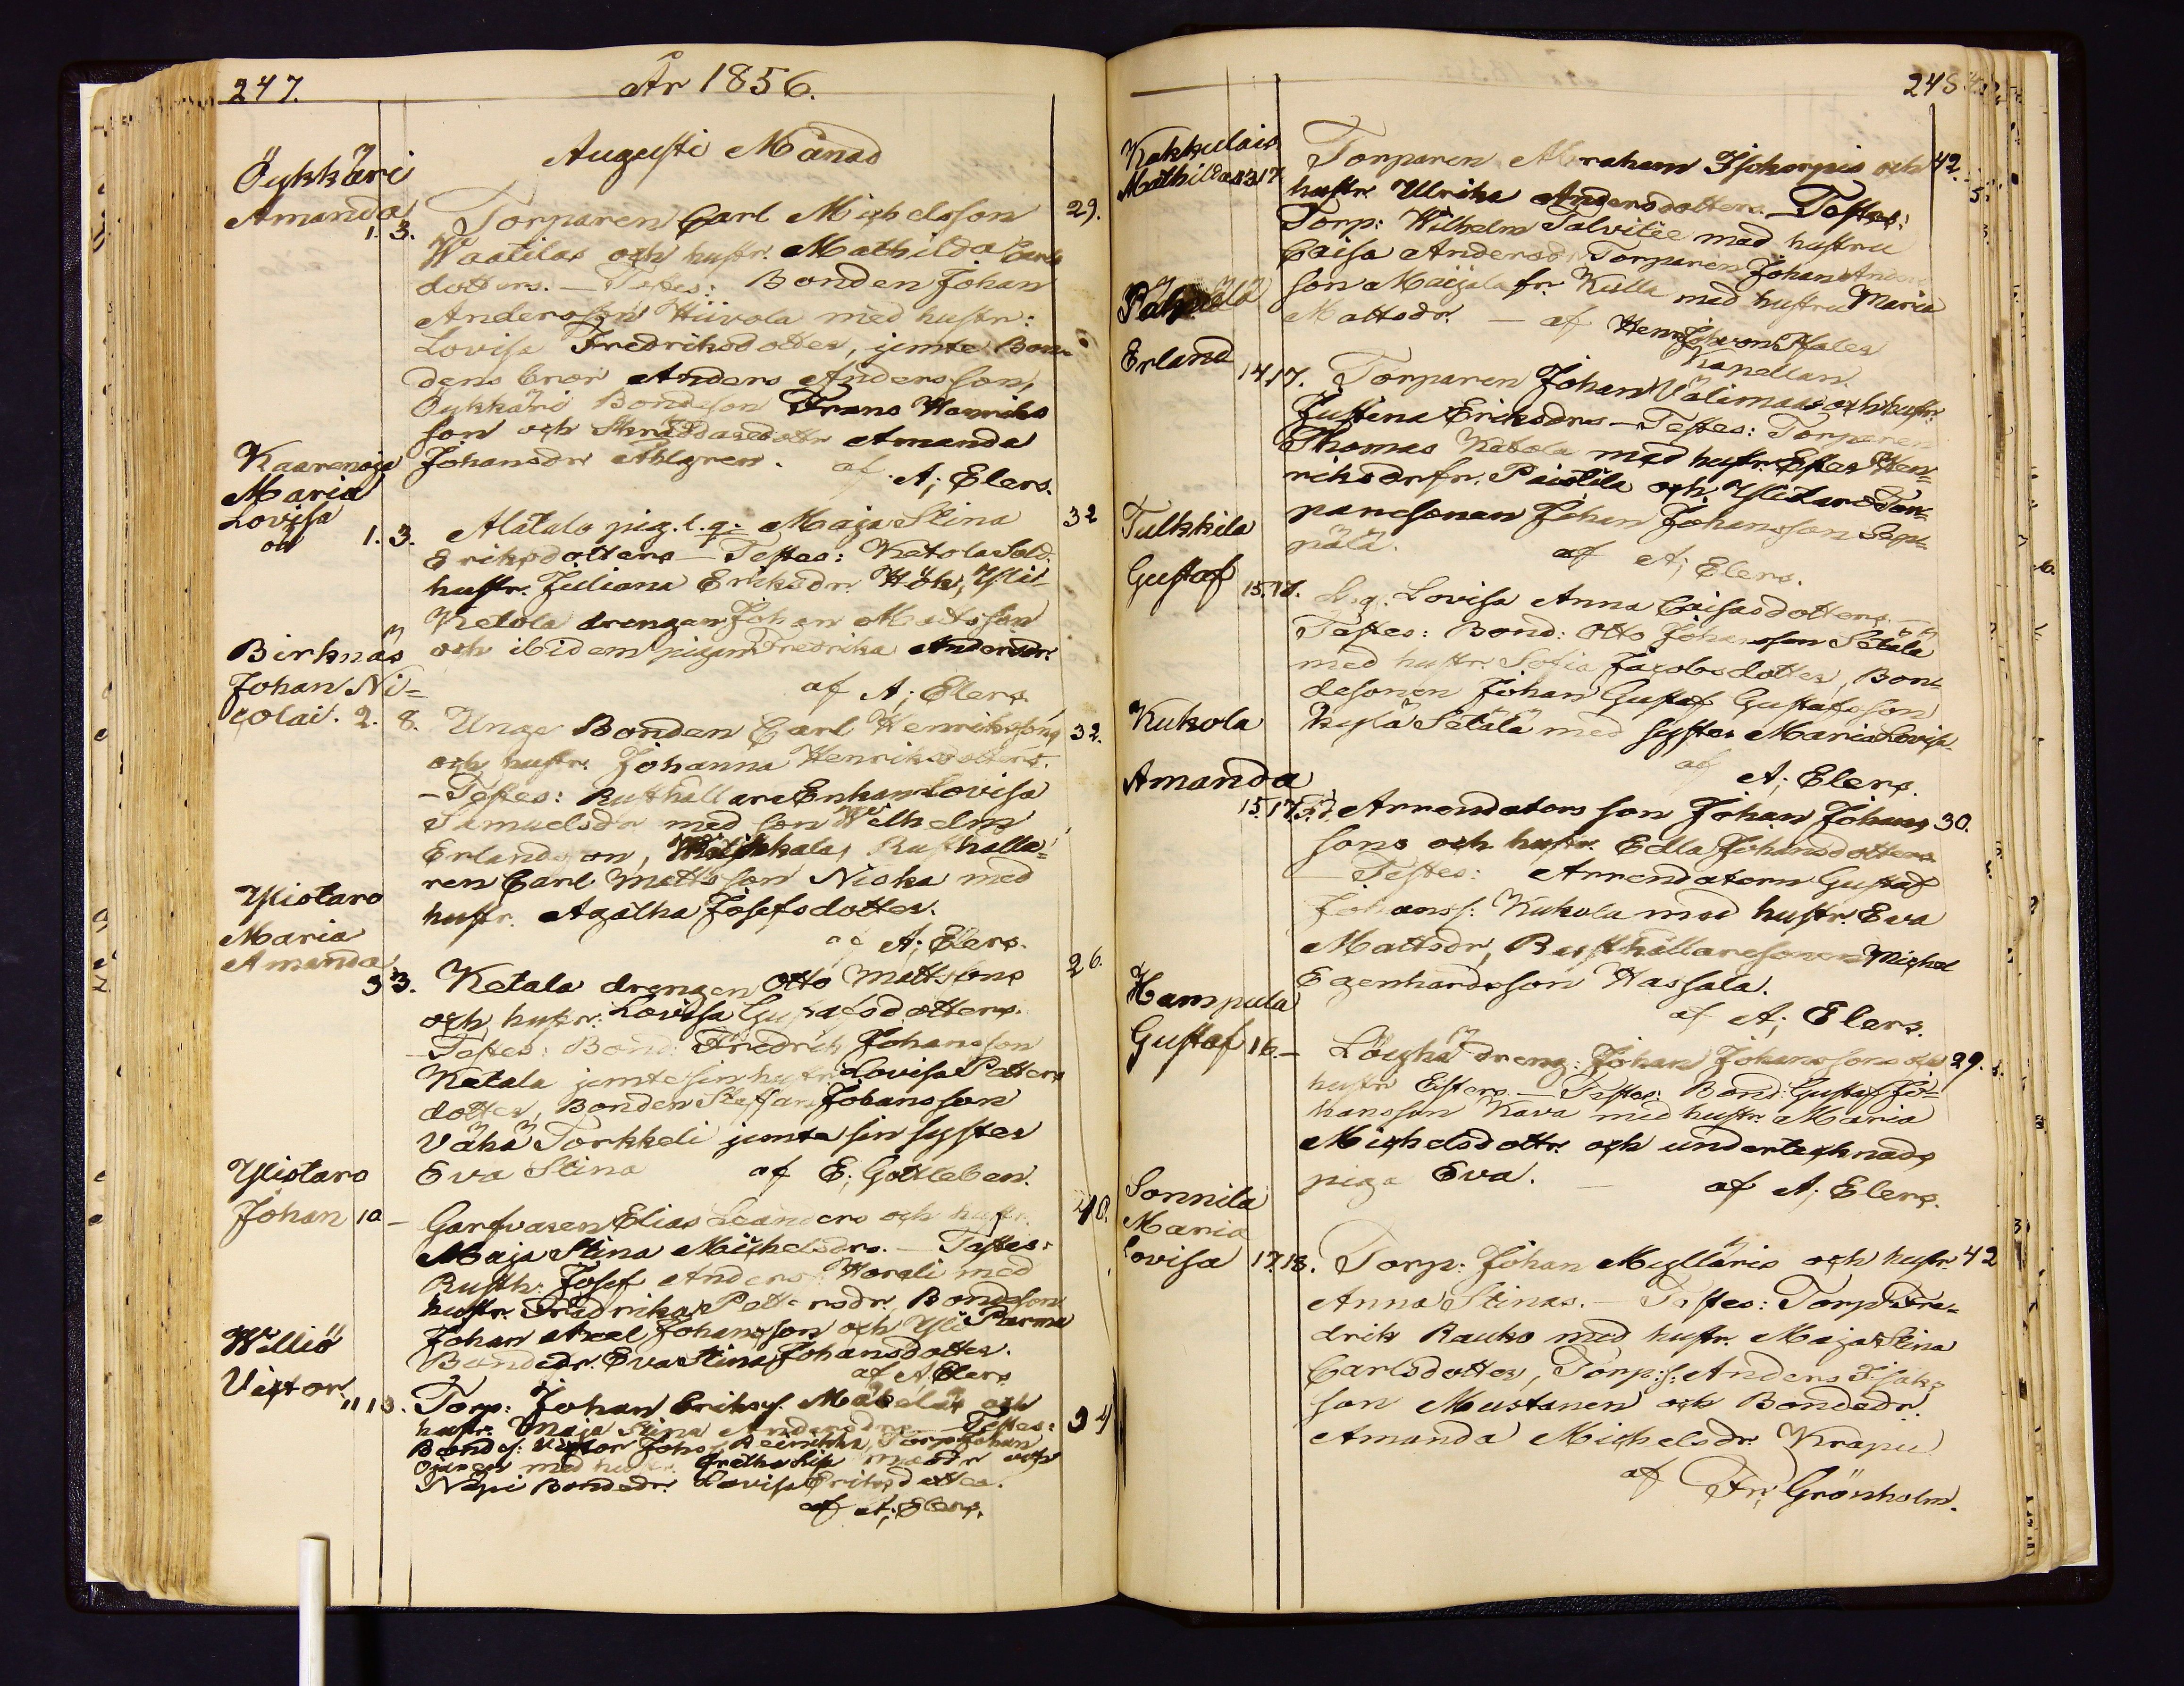 247.
År 1856.
Augusti Månad
Öykkäri
Amanda
1. 3.
Torparen Carl Michelsson
29.
Waatilas och hustr. Mathilda Carls
dotters. — Testes: Bonden Johan
Andersson Hiivola med hustr:
Lovisa Fredriksdotter, jemte Bon-
dens bror Anders Andersson,
Öykkäri Bondeson Frans Henriks
son och Skräddaredottr Amanda
Johansdr Ahlgren. af A; Elers.
Kaarenoja
Maria
Lovisa
oä
1. 3.
Alatalo pig. l. q: Maja Stina
32
Eriksdotters — Testes: Ketola Sold.
hustr. Juliana Eriksdr. Hök, Yli-
Ketola drengen Johan Mattsson
och ibidem pigan Fredrika Andersdr.
af A; Elers.
Birknäs
Johan Ni-
colai. 2. 8.
Unge Bonden Carl Henrikssons
32.
och hustr. Johanna Henriksdotters.
— Testes: Rusthållare Enkan Lovisa
Samuelsdr med son Wilhelm
Erlandsson, Rusthålla-
ren Carl Mattsson Niska med
hustr. Agatha Josefsdotter.
af A; Elers.
Ylistaro
Maria
Amanda
3 3.
Ketala drengen Otto Mattsons
26.
och hustr: Lovisa Gustafsdotters.
— Testes: Bond: Fredrik Johansson
Ketala jemte sin hustr Lovisa Petters
dotter, Bonden Stefan Johansson
Vähä Torkkeli jemte sin syster
Eva Stina af E; Gottleben.
Ylistaro
Johan 10 —
Garfvaren Elias Leanders och hustr.
40.
Maja Stina Michelsdrs. — Testes:
Rusth: Josef Anders: Horeli med
hustr. Fredrika Pettersdr, Bondeson
Johan Axel Johansson och Yli Parma
Bondedr. Eva Stina Johansdotter.
af A Elers
Williö
Victor. 11 13.
Torp: Johan Eriks: Mäkeläs och
34
hustr. Maja Stina Andersdrs — Testes:
Bonds: Victor Johs: Reinikka, Torp: Johan
Ojanen med hustr. Gretha Lisa och
Näpi Bondedr. Lovisa Eriksdotter.
af A; Elers.
248.
Kakkulais
Mathilda 13 17.
Torparen Abraham Isokorpis och
42.
hustr. Ulrika Andersdotters. — Testes:
Torp: Wilhelm Talvitie med hustru
Caisa Andersdr, Torparen Johan Anders
son Maijala fr. Kulla med hustru Maria
Mattsdr. — af Henr: Joh: von Pfaler
Kapellan.
Erland 14 17.
Torparen Johan Välimaas och hustr.
Justina Eriksdrs — Testes: Torparen
Thomas Ketola med hustr. Ester Hen-
riksdr fr. Paistila och Ylistaro Tor-
paresonen Johan Johansson Sep-
pälä. af A; Elers.
Tulkkila
Gustaf 15. 17.
l. q. Lovisa Anna Caisasdotters. —
Testes: Bond: Otto Johansson Setälä
med hustr. Sofia Jacobsdotter, Bon-
desonen Johan Gustaf Gustafsson
kylä Setälä med syster Maria Lovisa.
af A; Elers.
Kukola
Amanda
15. 17.
f. d. Arrendators son Johan Johans
30.
sons och hustr. Edla Johansdotters
— Testes: Arrendatorn Gustaf
Johanss: Kukola med hustr. Eva
Mattsdr, Rusthållaresonen Michel
Egenhardsson Hassala.
af A; Elers.
Hampula
Gustaf 16. —
Löyhä dreng: Johan Johanssons och
29.
hustr Esters. — Testes: Bond: Gustaf Jo-
hansson Kava med hustr. Maria
Michelsdottr. och undertecknads
piga Eva. — af A; Elers.
Sonnila
Maria
Lovisa 17. 18.
Torp: Johan Mylläris och hustr.
42
Anna Stinas. — Testes: Torp: Fre-
drik Rauko med hustr. Maja Stina
Carlsdotter, Torp: s: Anders Isaks
son Mustanen och Bondedr.
Amanda Michelsdr. Krapu
af Fr; Grönholm.